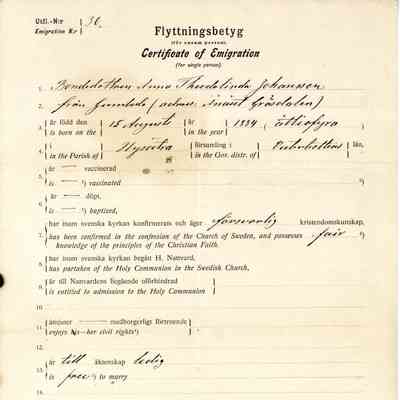 Utfl.-N:r 30.
Emigration N:r
Flyttningsbetyg
(för ensam person).
Certificate of Emigration
(for single person).
1. Bondedottren Anna Theodelinda Johansson
2. från
3. är född den 15 Augusti år 1884 (åttiofyra
is born on the in the year
4. i församling i län,
in the Parish of in the Gov. distr. of
5. är — vaccinerad
is — ¹) vaccinated
6. är — döpt,
is — ¹) baptised,
7. har inom svenska kyrkan konfirmerats och äger försvarlig kristendomskunskap,
has been confirmed in the confession of the Church of Sweden, and possesses fair ²)
knowledge of the principles of the Christian Faith.
8. har inom svenska kyrkan begått H. Nattvard,
has partaken of the Holy Communion in the Swedish Church,
9. är till Nattvardens begående oförhindrad
is entitled to admission to the Holy Communion
10.
11. åtnjuter — medborgerligt förtroende
enjoys his—her civil rights¹)
12.
13. är till äktenskap ledig
is free ³) to marry
14.